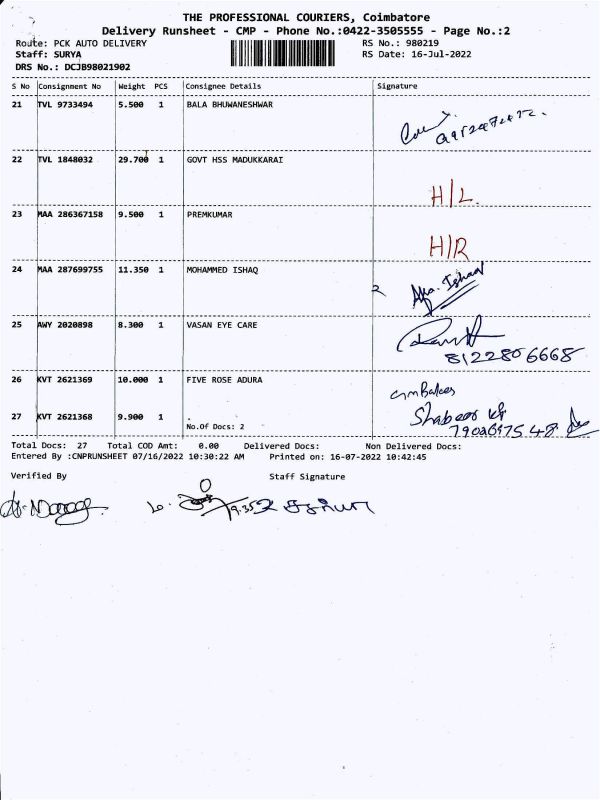 THE PROFESSIONAL COURIERS, Coimbatore
Delivery Runsheet - CMP - Phone No.:0422-3505555 - Page No.:2
Route: PCK AUTO DELIVERY RS No.: 980219
Staff: SURYA RS Date: 16-Jul-2022
DRS No.: DCJB98021902
S No Consignment No Weight PCS Consignee Details Signature
21 TVL 9733494 5.500 1 BALA BHUWANESHWAR
22 TVL 1848032 29.700 1 GOVT HSS MADUKKARAI
H/L.
23 MAA 286367158 9.500 1 PREMKUMAR
H/R
24 MAA 287699755 11.350 1 MOHAMMED ISHAQ
25 AWY 2020898 8.300 1 VASAN EYE CARE
8122806668
26 KVT 2621369 10.000 1 FIVE ROSE ADURA
27 KVT 2621368 9.900 1 Shabeer
No.Of Docs: 2
Total Docs: 27 Total COD Amt: 0.00 Delivered Docs: Non Delivered Docs:
Entered By :CNPRUNSHEET 07/16/2022 10:30:22 AM Printed on: 16-07-2022 10:42:45
Verified By Staff Signature